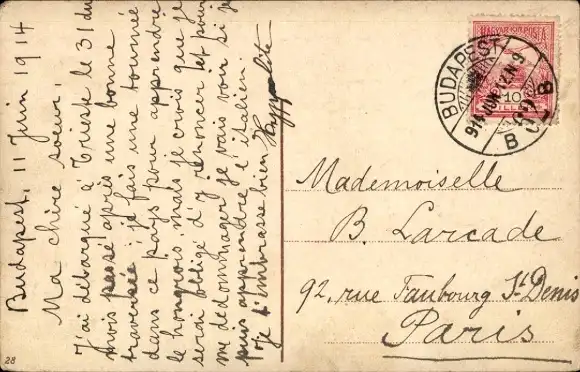 Budapest, 11 Juin 1914
Ma chère soeur,
J'ai débarqué à Trieste le 31 du
mois passé après une bonne
traversée ; je fais une tournée
dans ce pays pour apprendre
le hongrois mais je crois que je
serai obligé d'y renoncer et pour
me dédommager je vais voir si je
puis apprendre l'italien.
Je t'embrasse bien Hyppolite
MAGYAR KIR. POSTA
10
BUDAPEST
914 JUN 12 N 9
B
Mademoiselle
B. Larcade
92, rue Faubourg St. Denis
Paris
28